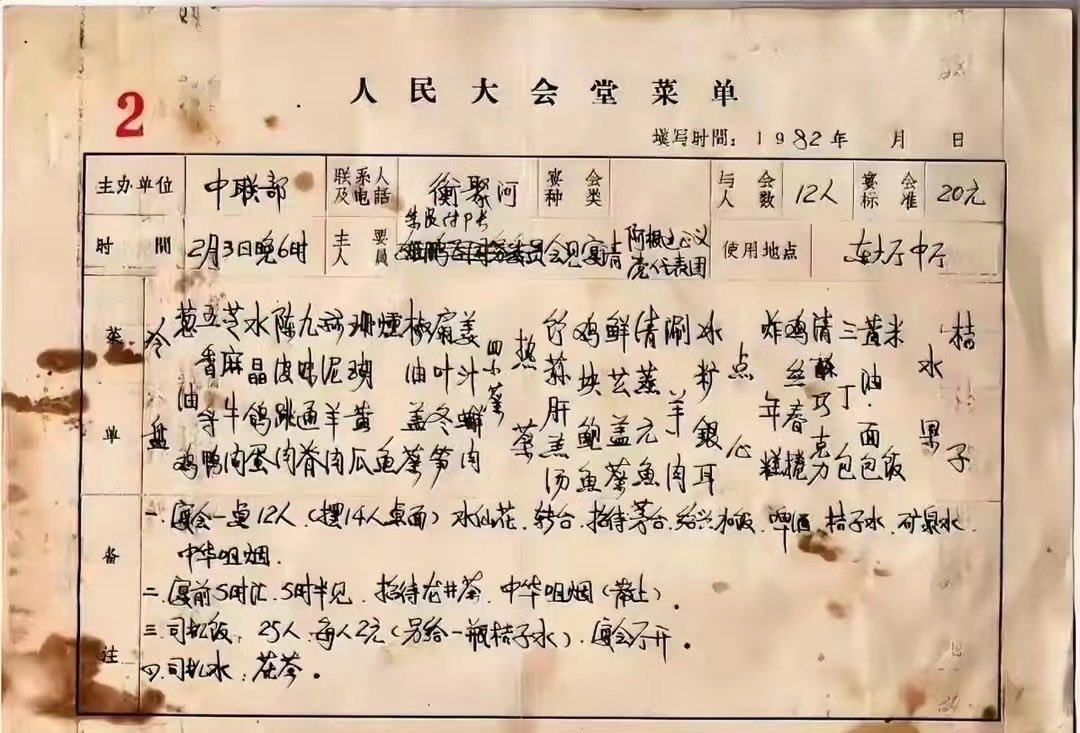 人民大会堂菜单
2
填写时間：1982年 月 日
主办单位 中联部 联系人及电話 衡聚河 宴会种类 与会人数 12人 宴会标准 20元
时間 2月3日晚6时 主要人員 会见宴请 党代表团 使用地点 东大厅中厅
菜单
冷盘
葱油鸡
五香鸭
芝麻牛肉
水晶鸽蛋
陈皮肉
九味通脊
羊肉
珊瑚黄瓜
鱼
椒油盖菜
扇叶冬笋
姜汁肉
四小菜
热菜
竹荪肝羔汤
鸡块鲍鱼
鲜芸盖菜
清蒸元鱼
涮羊肉
冰银耳
点心
炸年糕
鸡丝春捲
清酥巧克力
三丁包
黄油·面包
米饭
水果
桔子
备注
一.宴会一桌12人（摆14人桌面）水仙花、转台、招待茅台、绍兴、啤酒、桔子水、矿泉水、
中华咀烟.
二.宴前5时汇、5时半见、招待龙井茶、中华咀烟（散上）.
三.司机饭、25人、每人2元（另给一瓶桔子水）、宴会厅开
四.司机水、花茶.